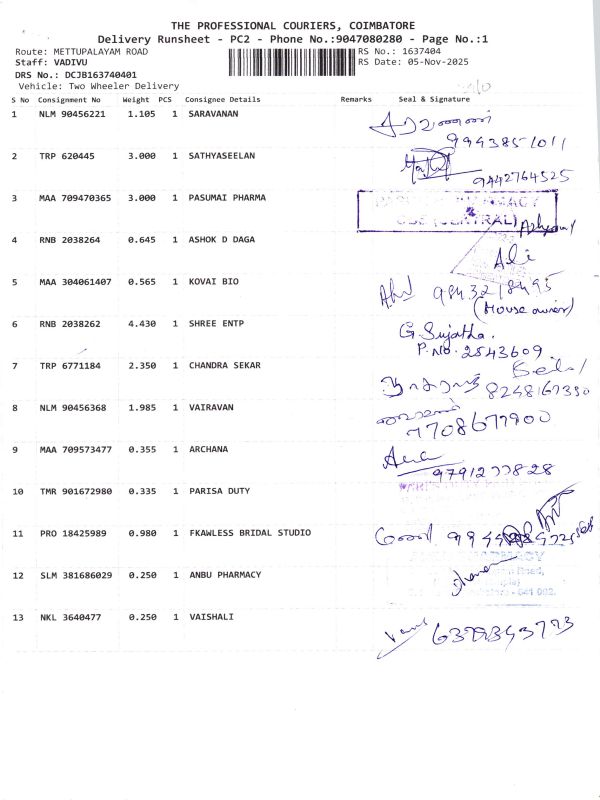 THE PROFESSIONAL COURIERS, COIMBATORE
Delivery Runsheet - PC2 - Phone No.:9047080280 - Page No.:1
Route: METTUPALAYAM ROAD RS No.: 1637404
Staff: VADIVU RS Date: 05-Nov-2025
DRS No.: DCJB163740401
Vehicle: Two Wheeler Delivery
S No Consignment No Weight PCS Consignee Details Remarks Seal & Signature
1 NLM 90456221 1.105 1 SARAVANAN
9943851011
2 TRP 620445 3.000 1 SATHYASEELAN
9442764525
3 MAA 709470365 3.000 1 PASUMAI PHARMA
4 RNB 2038264 0.645 1 ASHOK D DAGA
5 MAA 304061407 0.565 1 KOVAI BIO 9843218495
(House owner)
6 RNB 2038262 4.430 1 SHREE ENTP G. Sujatha.
P.No. 2543609.
7 TRP 6771184 2.350 1 CHANDRA SEKAR
8248167390
8 NLM 90456368 1.985 1 VAIRAVAN
7708677900
9 MAA 709573477 0.355 1 ARCHANA
9791277828
10 TMR 901672980 0.335 1 PARISA DUTY
11 PRO 18425989 0.980 1 FKAWLESS BRIDAL STUDIO
12 SLM 381686029 0.250 1 ANBU PHARMACY
13 NKL 3640477 0.250 1 VAISHALI 6379343773